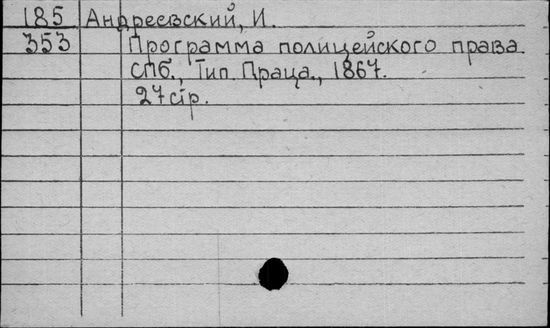 185 Андреевский, И.
353 Программа полицейского права.
СПб., Тип. Праца., 1867.
27 стр.